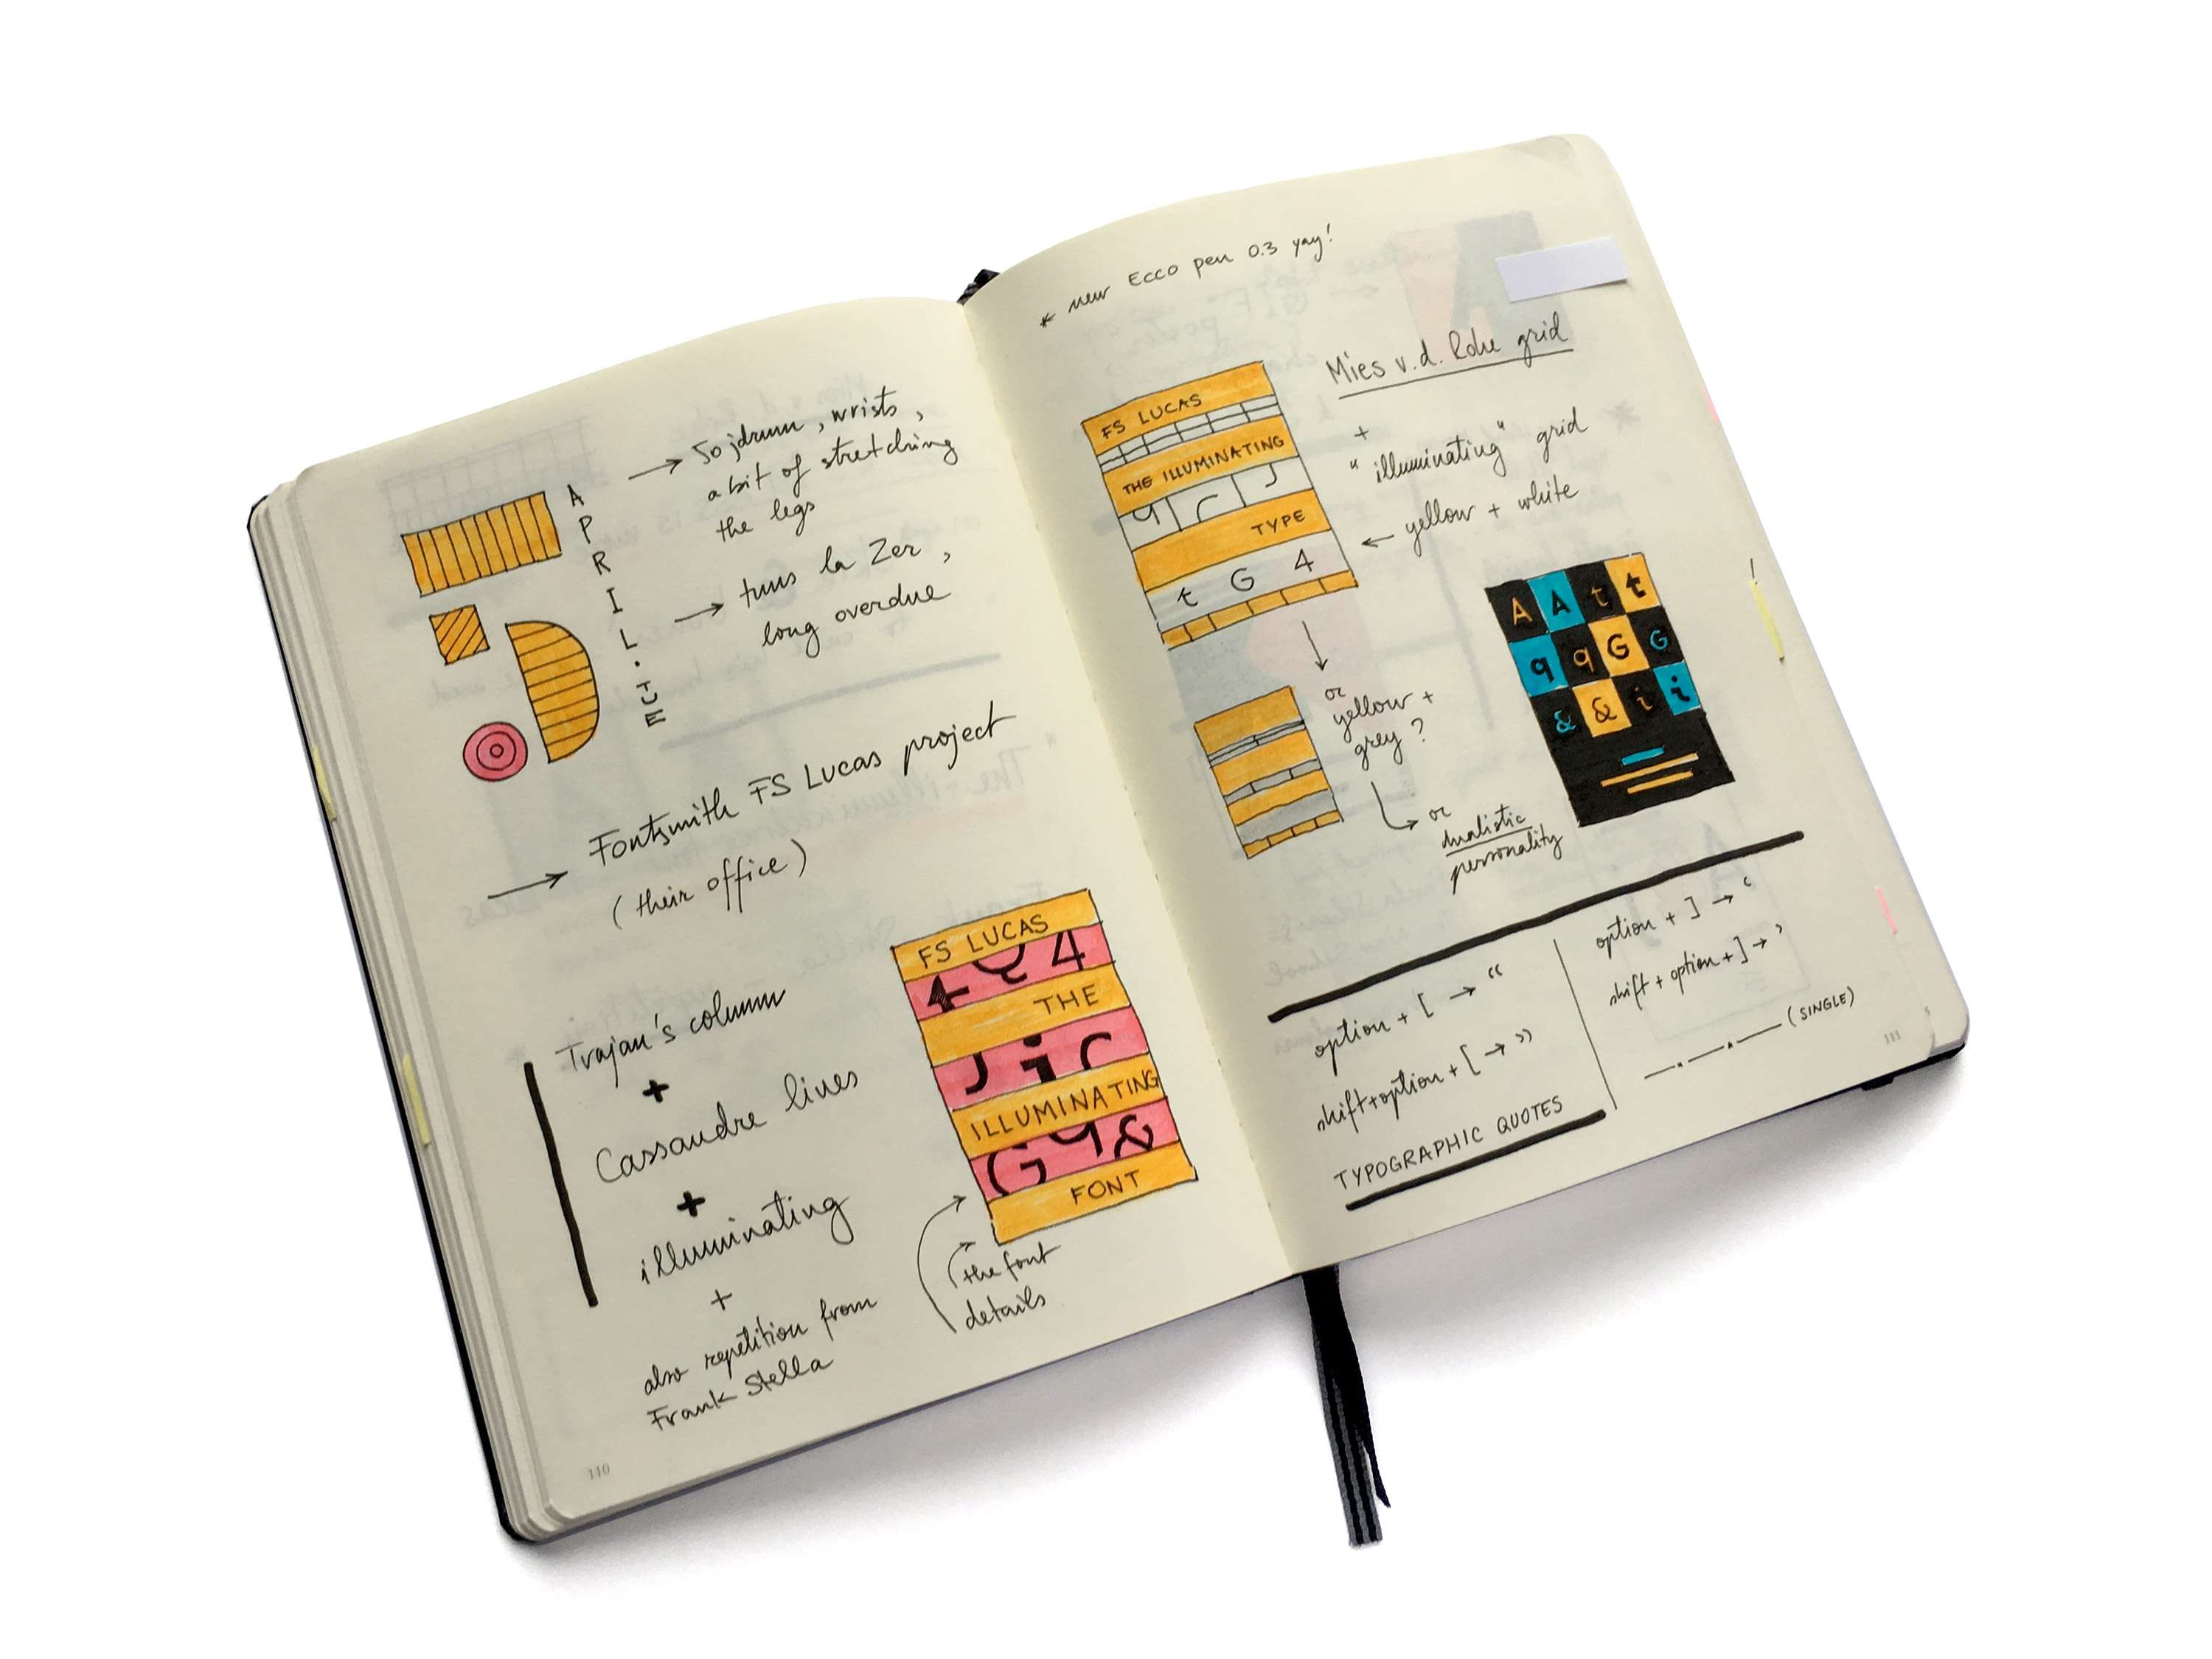 5.
APRIL.TUE
→ 50 , wrists,
a bit of stretching
the legs
→ tuns la Zer,
long overdue
→ Fontsmith FS Lucas project
(their office)
Trajan's column
+
Cassandre lines
+
illuminating
+
also repetition from
Frank Stella
FS LUCAS
Q 4
THE
J i C
ILLUMINATING
G q &
FONT
the font
details
110
* new Ecco pen 0.3 yay!
Mies v.d. Rohe grid
+
"illuminating" grid
← yellow + white
FS LUCAS
THE ILLUMINATING
TYPE
t G 4
or
yellow +
grey?
or
dualistic
personality
A A t t
q q G G
& & i i
option + [ → “
shift+option + [ → ”
TYPOGRAPHIC QUOTES
option + ] → ‘
shift + option + ] → ’
(SINGLE)
111